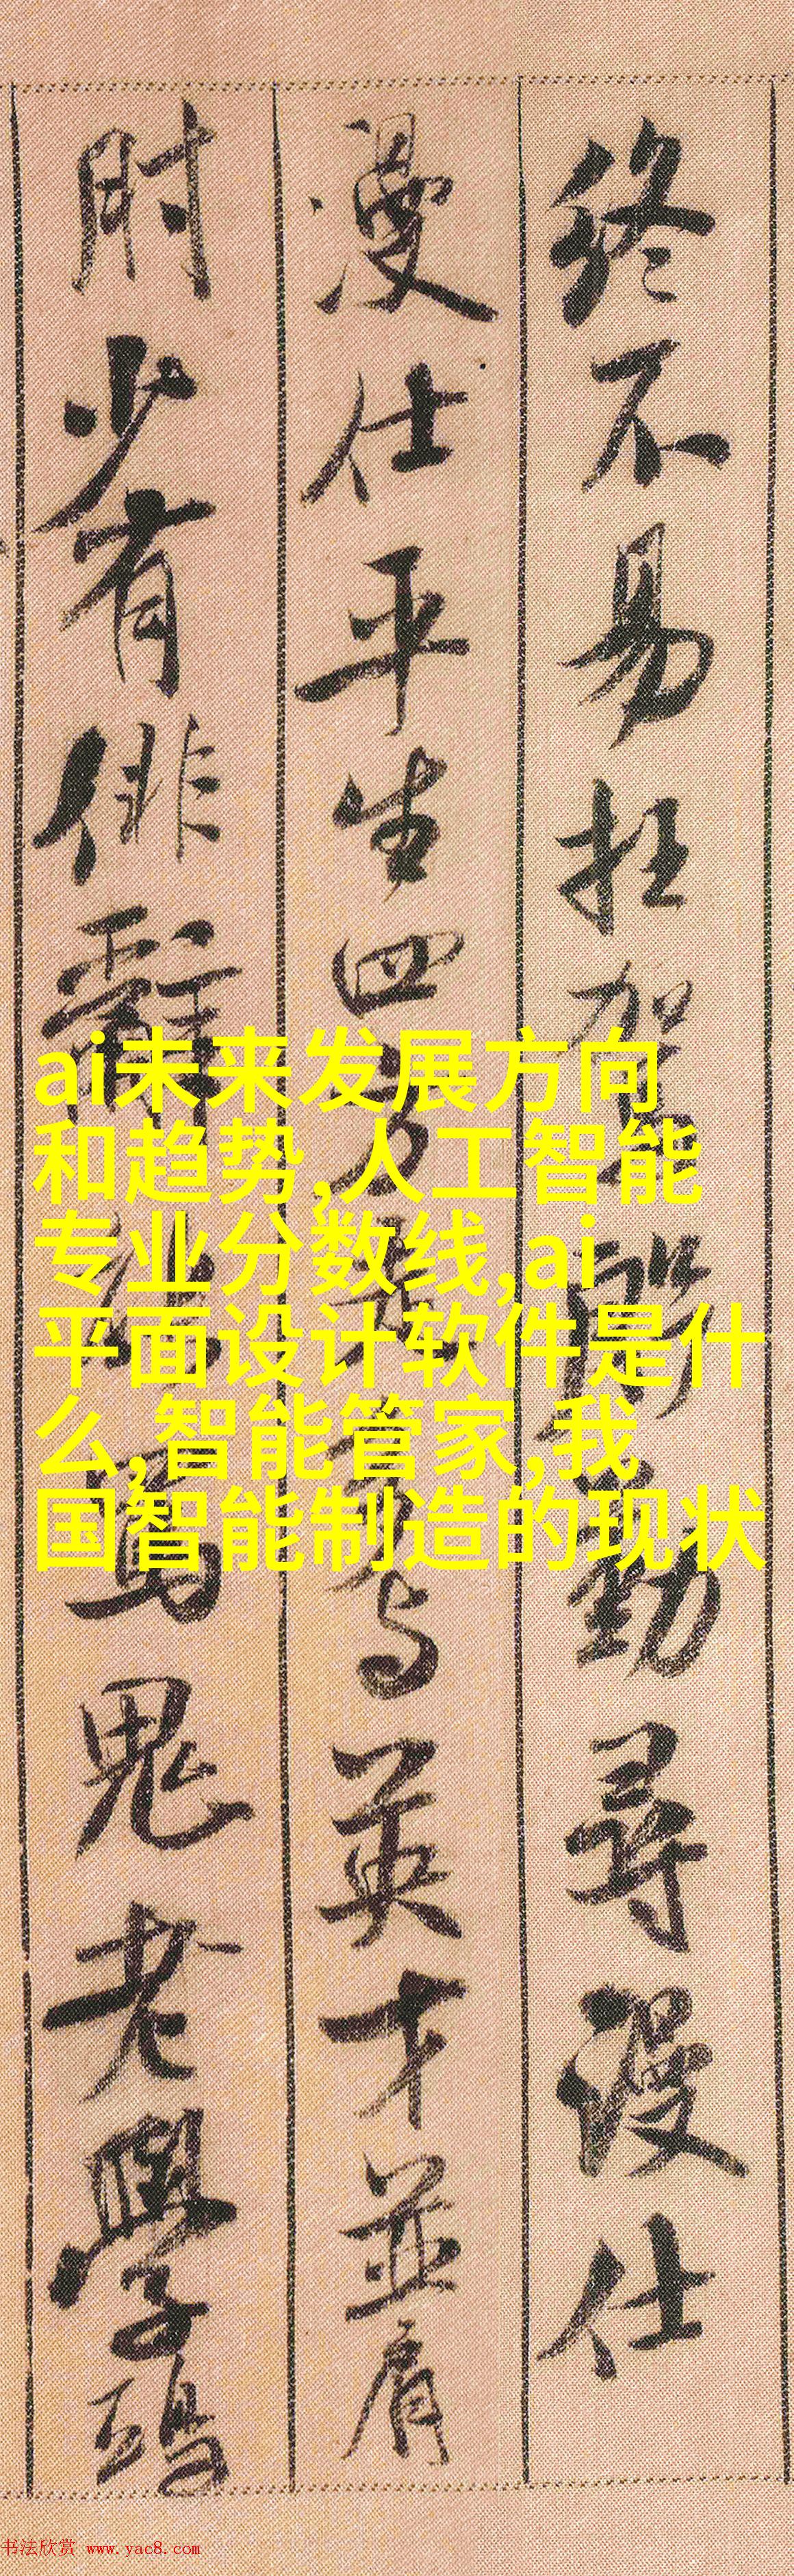 终不易抂驾
勤寻漫仕
漫仕平生四方
与英才並肩
肘少有俳辤
罵鬼老學
ai未来发展方向
和趋势,人工智能
专业分数线,ai
平面设计软件是什
么,智能管家,我
国智能制造的现状
书法欣赏 www.yac8.com